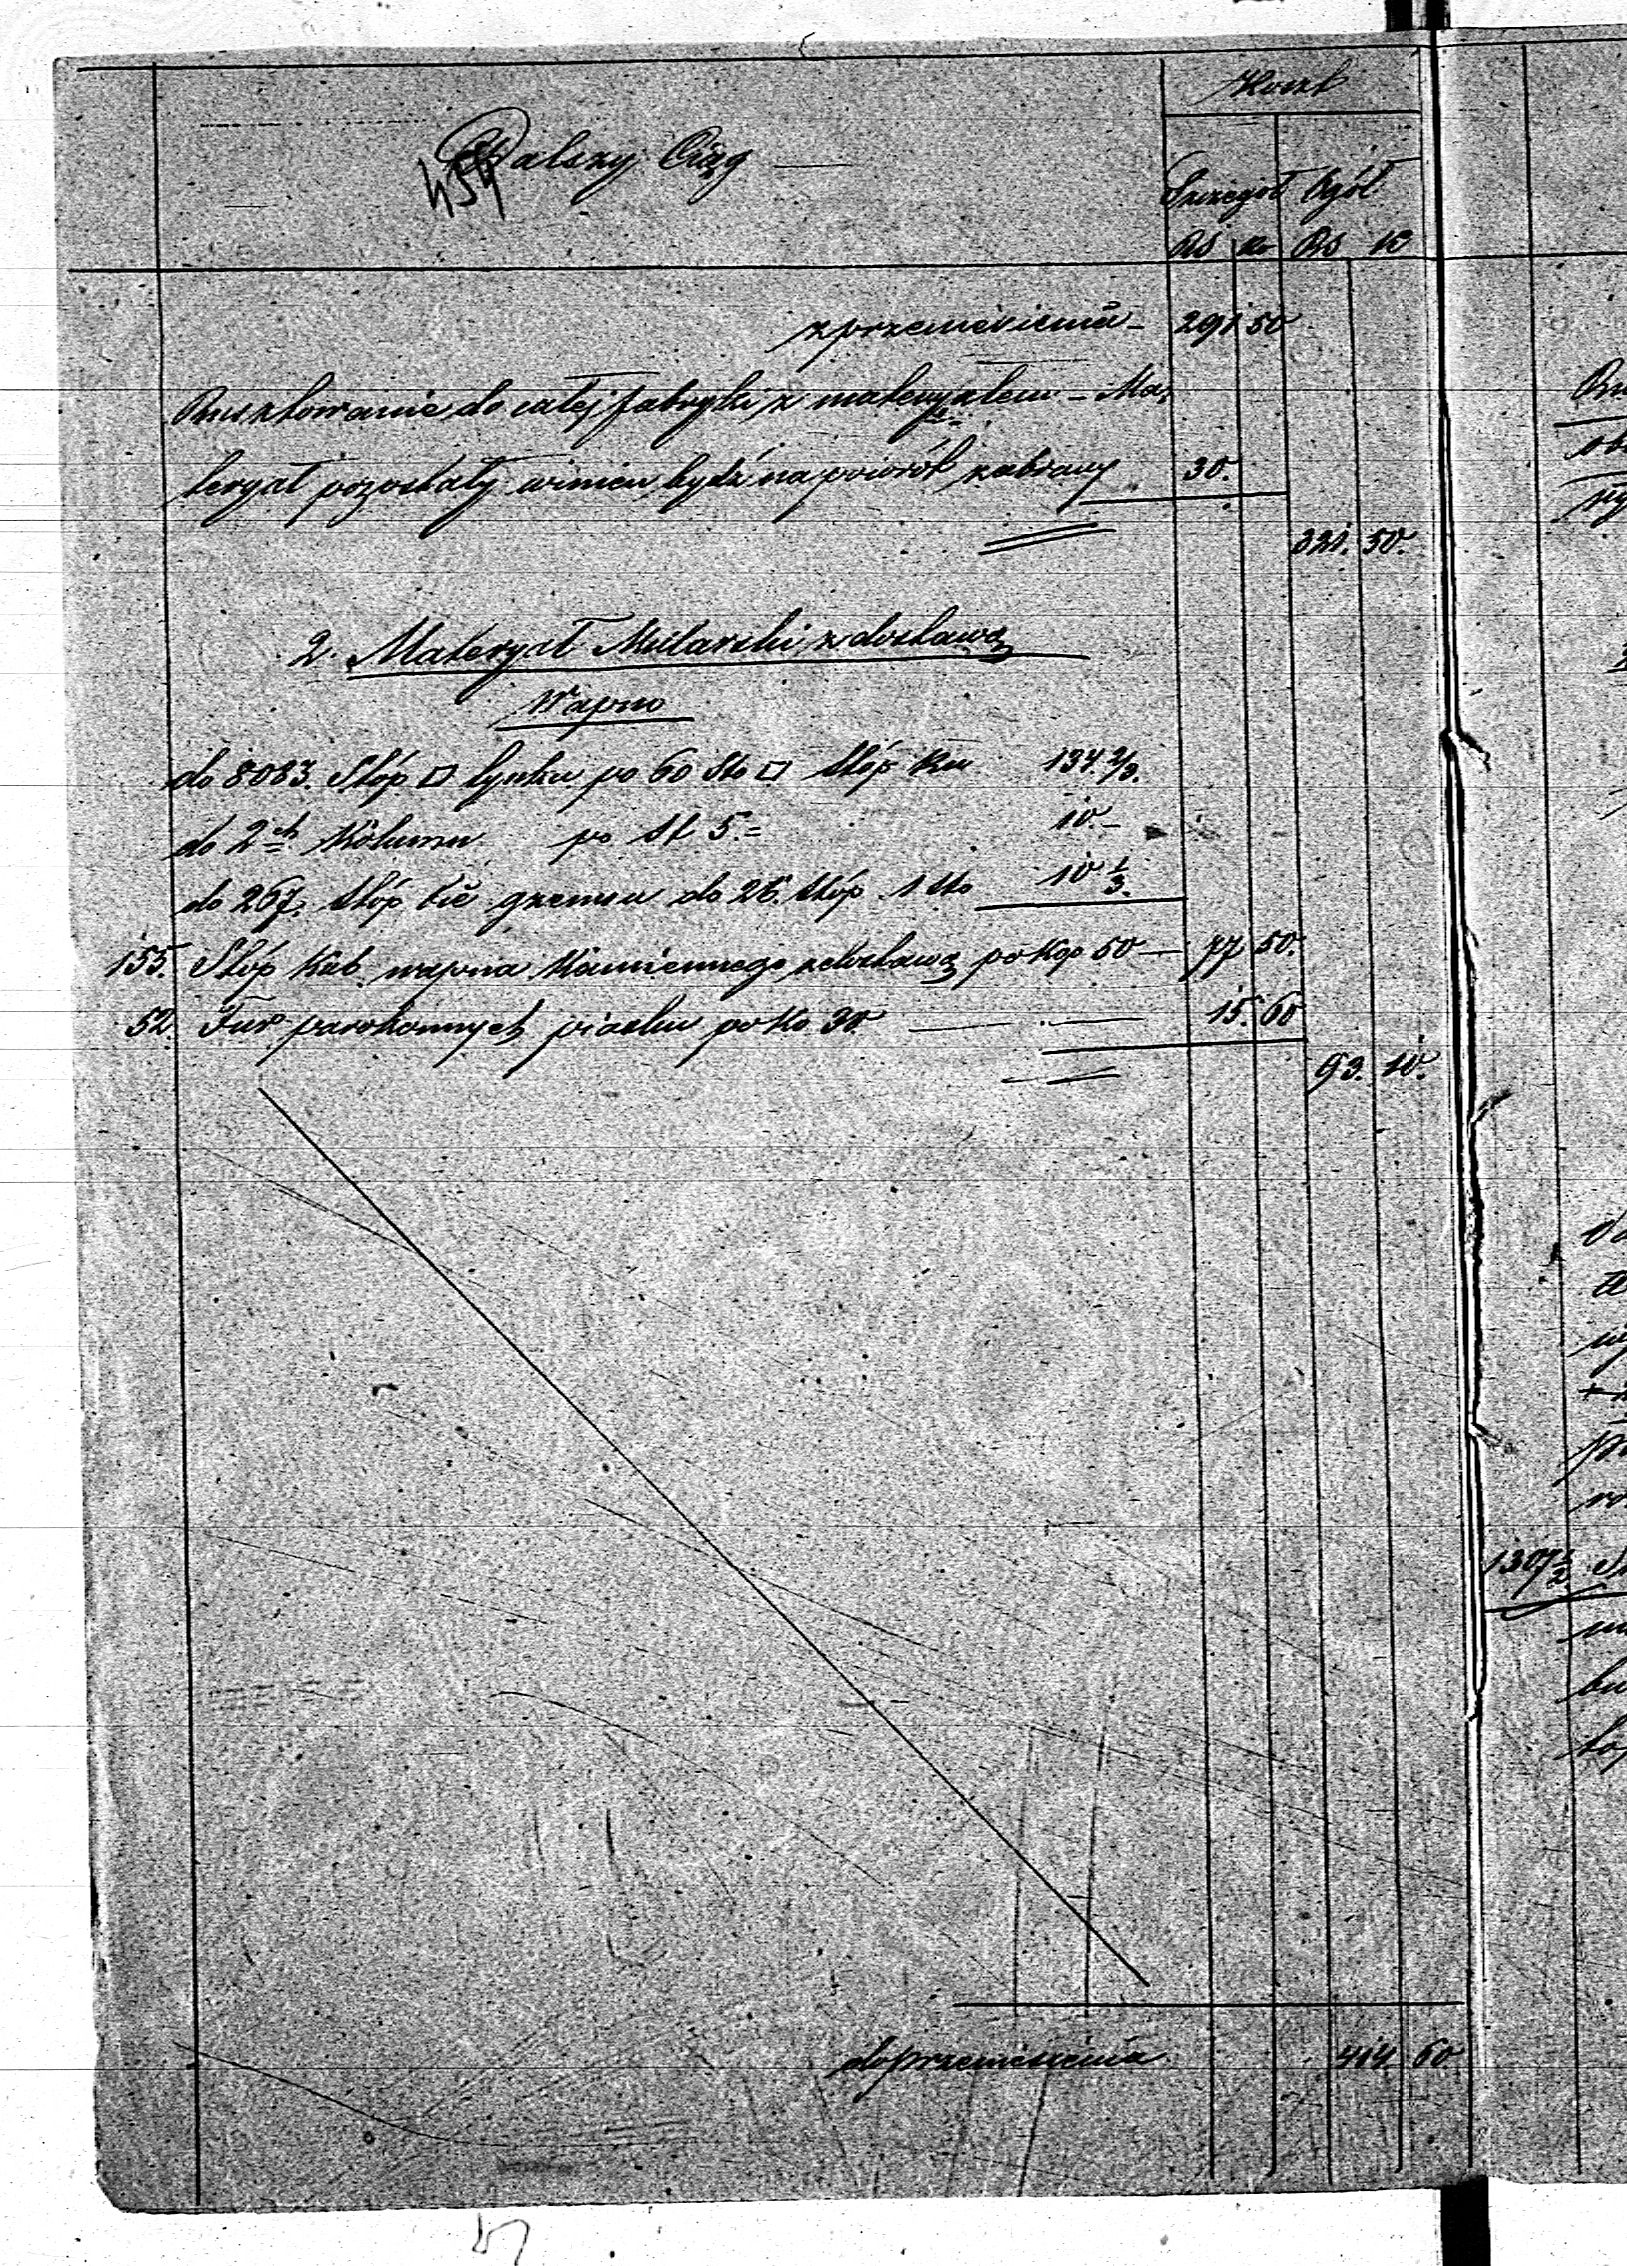 Koszt
Dalszy Ciąg
454
Szczegół Ogół
RS Ko RS K
z przeniesienia - 291 50
Rusztowanie do całej fabryki z materyałem - Ma-
teryał pozostały winien bydź napowrót zabrany 30.
321. 50.
2. Materyał Mularski z dostawą
Wapno
do 8083. Stóp □ tynku po 60 Sto □ Stóp Ku 134 2/3.
do 2ch Kolumn po St 5.= 10.-
do 267. Stóp bie gzemsu do 26. Stóp 1 Sto 10 1/3.
155. Stóp Kub. wapna Kamiennego z dostawą po Kop 50 — 77 50.
52 Fur parokonnych piasku po Ko 30 — 15. 60
93. 10.
do przeniesienia 414. 60
1307 1/2